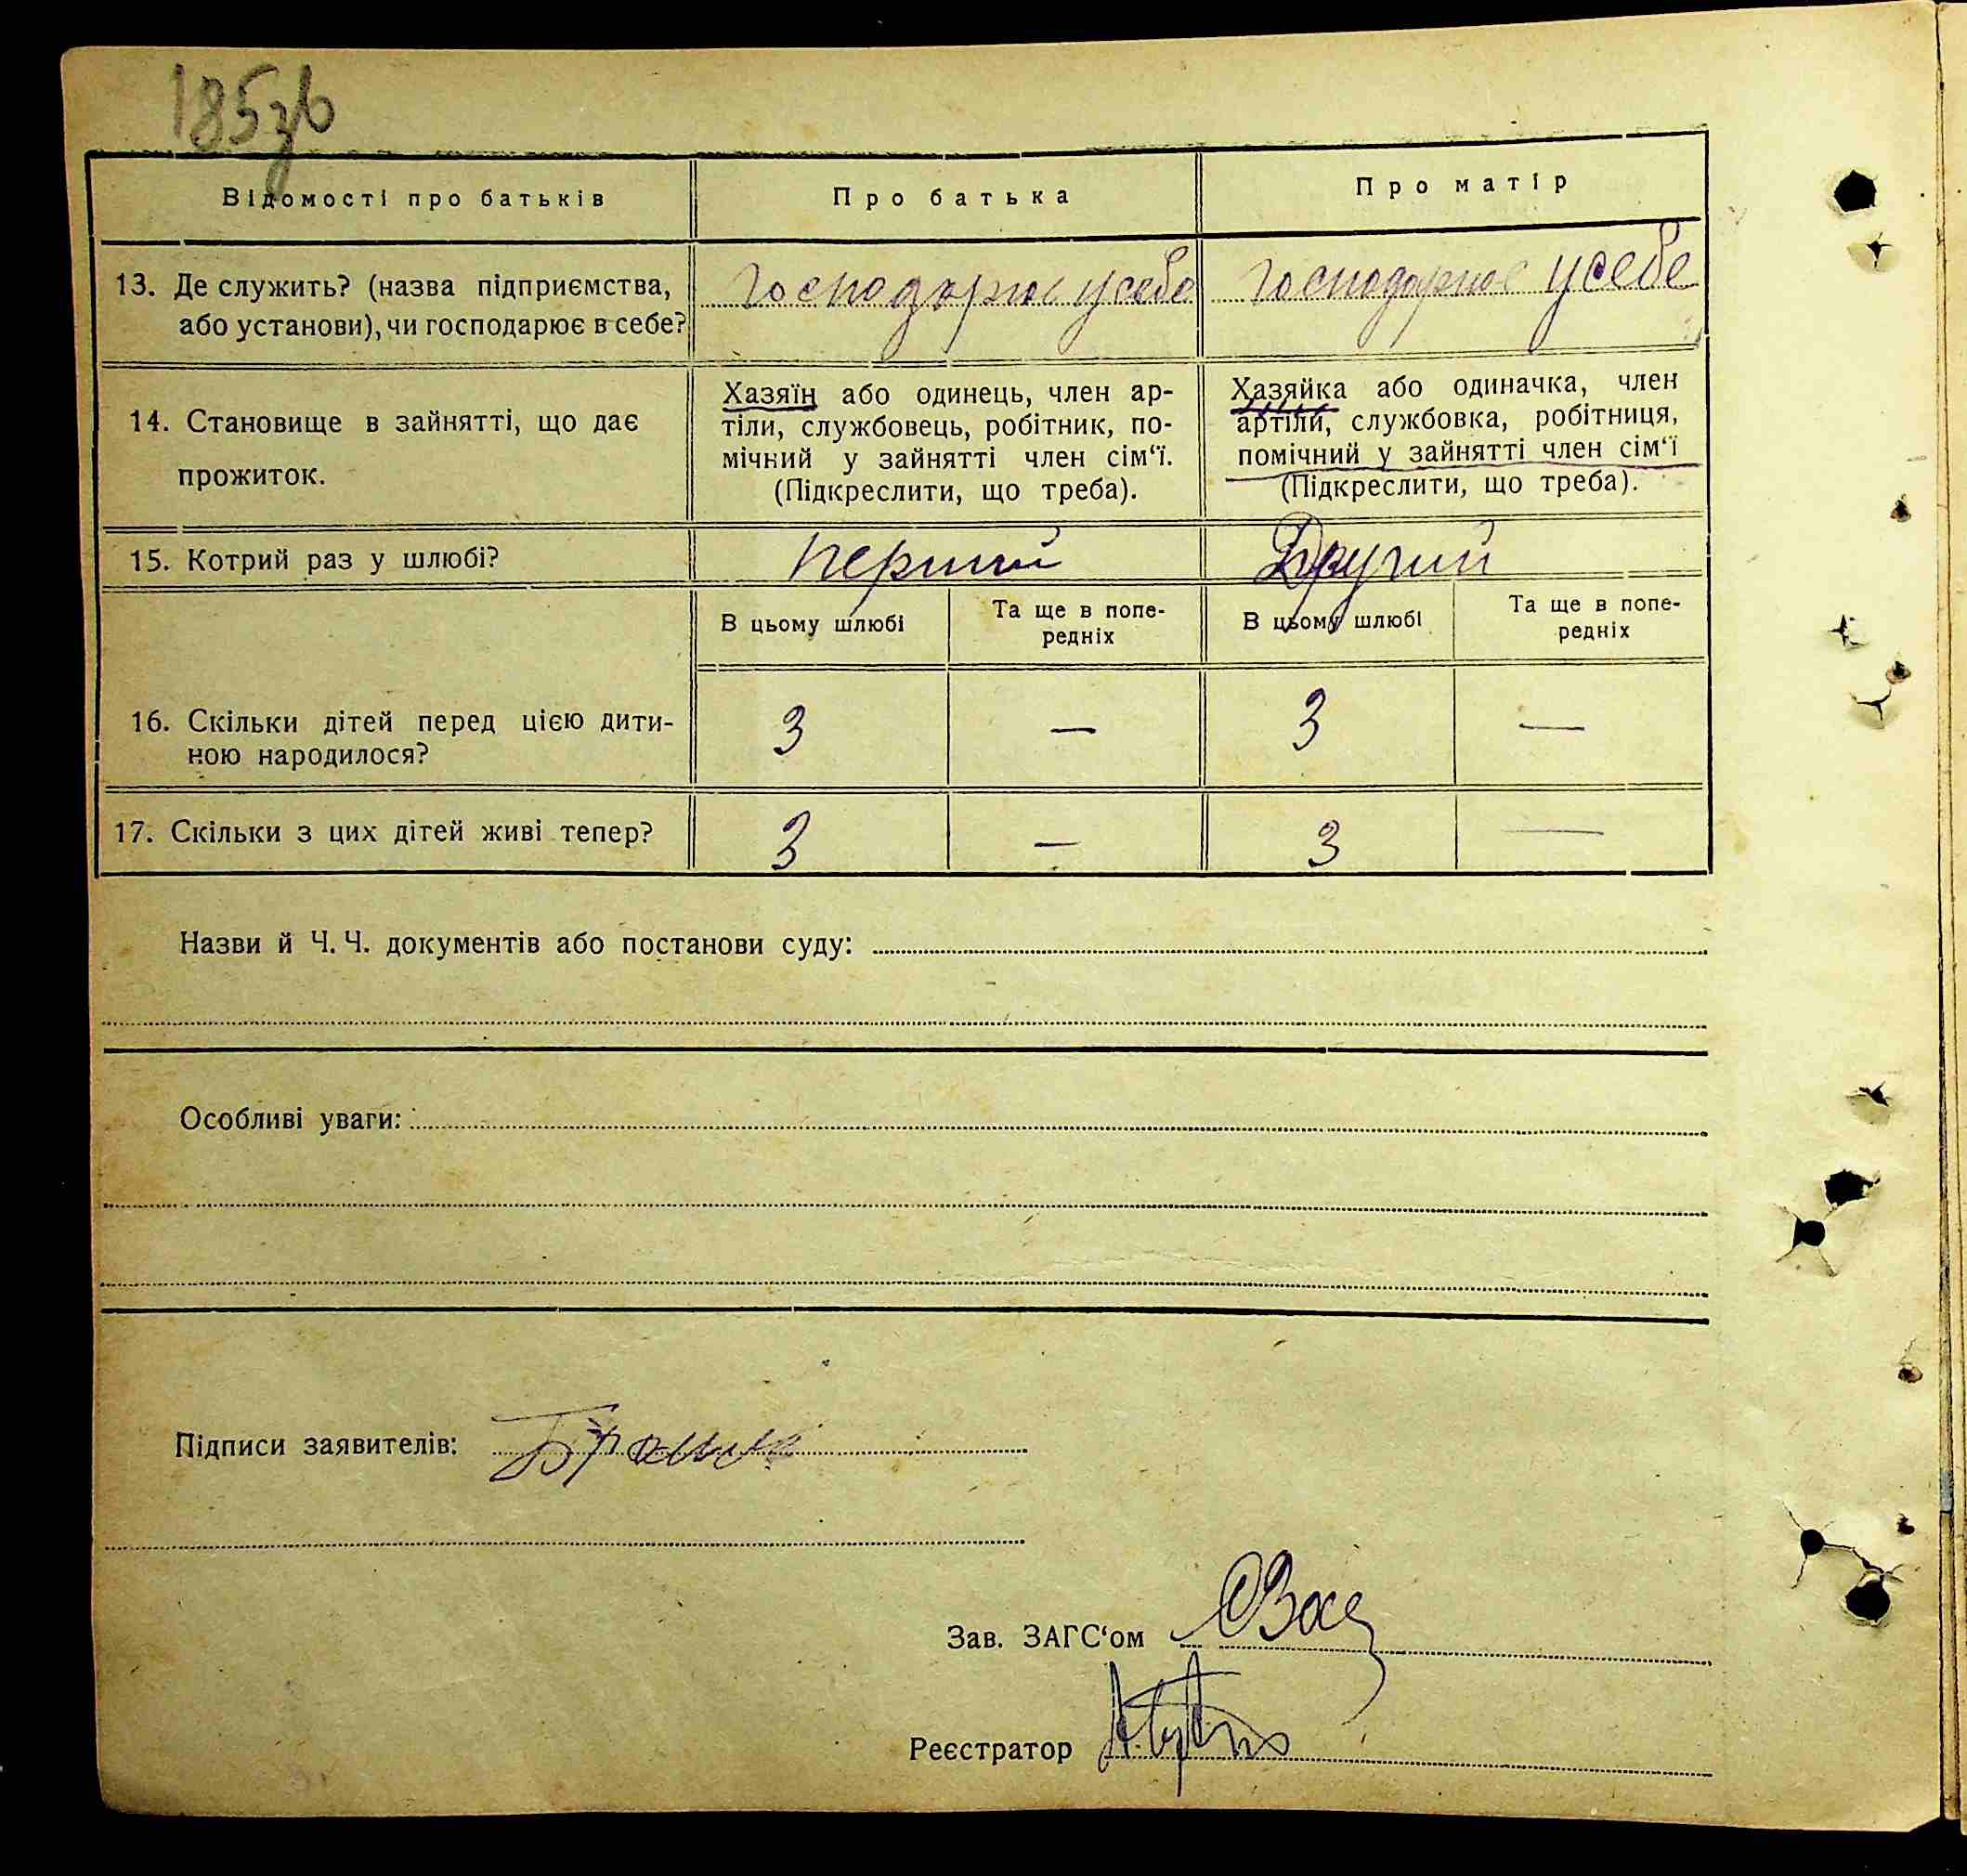 185зв
Відомості про батьків
Про батька
Про матір
13. Де служить? (назва підприємства,
або установи), чи господарює в себе?
господарює у себе
господарює у себе
14. Становище в зайнятті, що дає
прожиток.
Хазяїн або одинець, член ар-
тіли, службовець, робітник, по-
мічний у зайнятті член сім‘ї.
(Підкреслити, що треба).
Хазяйка або одиначка, член
артіли, службовка, робітниця,
помічний у зайнятті член сім‘ї
(Підкреслити, що треба).
15. Котрий раз у шлюбі?
перший
Другий
В цьому шлюбі
Та ще в попе-
редніх
В цьому шлюбі
Та ще в попе-
редніх
16. Скільки дітей перед цією дити-
ною народилося?
3
—
3
—
17. Скільки з цих дітей живі тепер?
3
—
3
—
Назви й Ч. Ч. документів або постанови суду:
Особливі уваги:
Підписи заявителів:
Зав. ЗАГС‘ом
Реєстратор